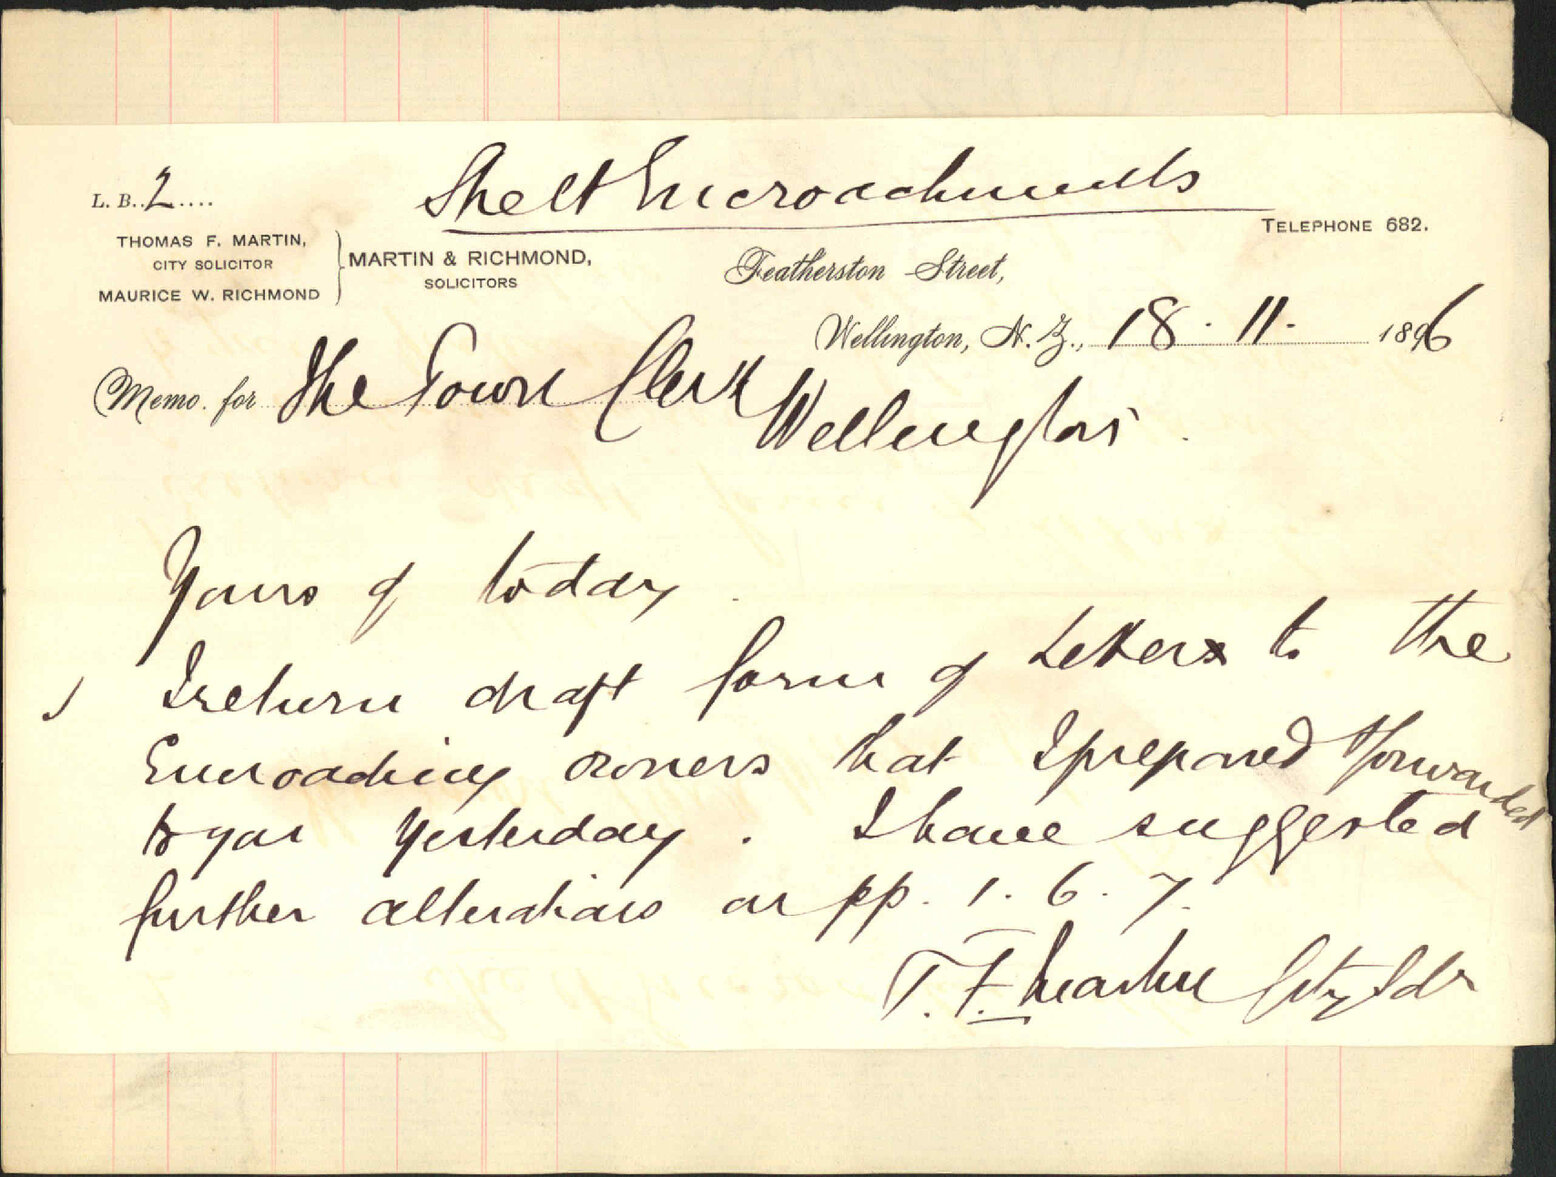 L. B. 2....
Street Encroachments
TELEPHONE 682.
THOMAS F. MARTIN,
CITY SOLICITOR
MAURICE W. RICHMOND
MARTIN & RICHMOND,
SOLICITORS
Featherston Street,
Wellington, N. Z., 18 . 11 . 1896
Memo. for The Town Clerk
Wellington
Yours of today.
I return draft form of Letter to the
Encroaching owners that I prepared & forwarded
to you yesterday. I have suggested
further alterations on pp. 1. 6. 7.
T. F. Martin City Solr